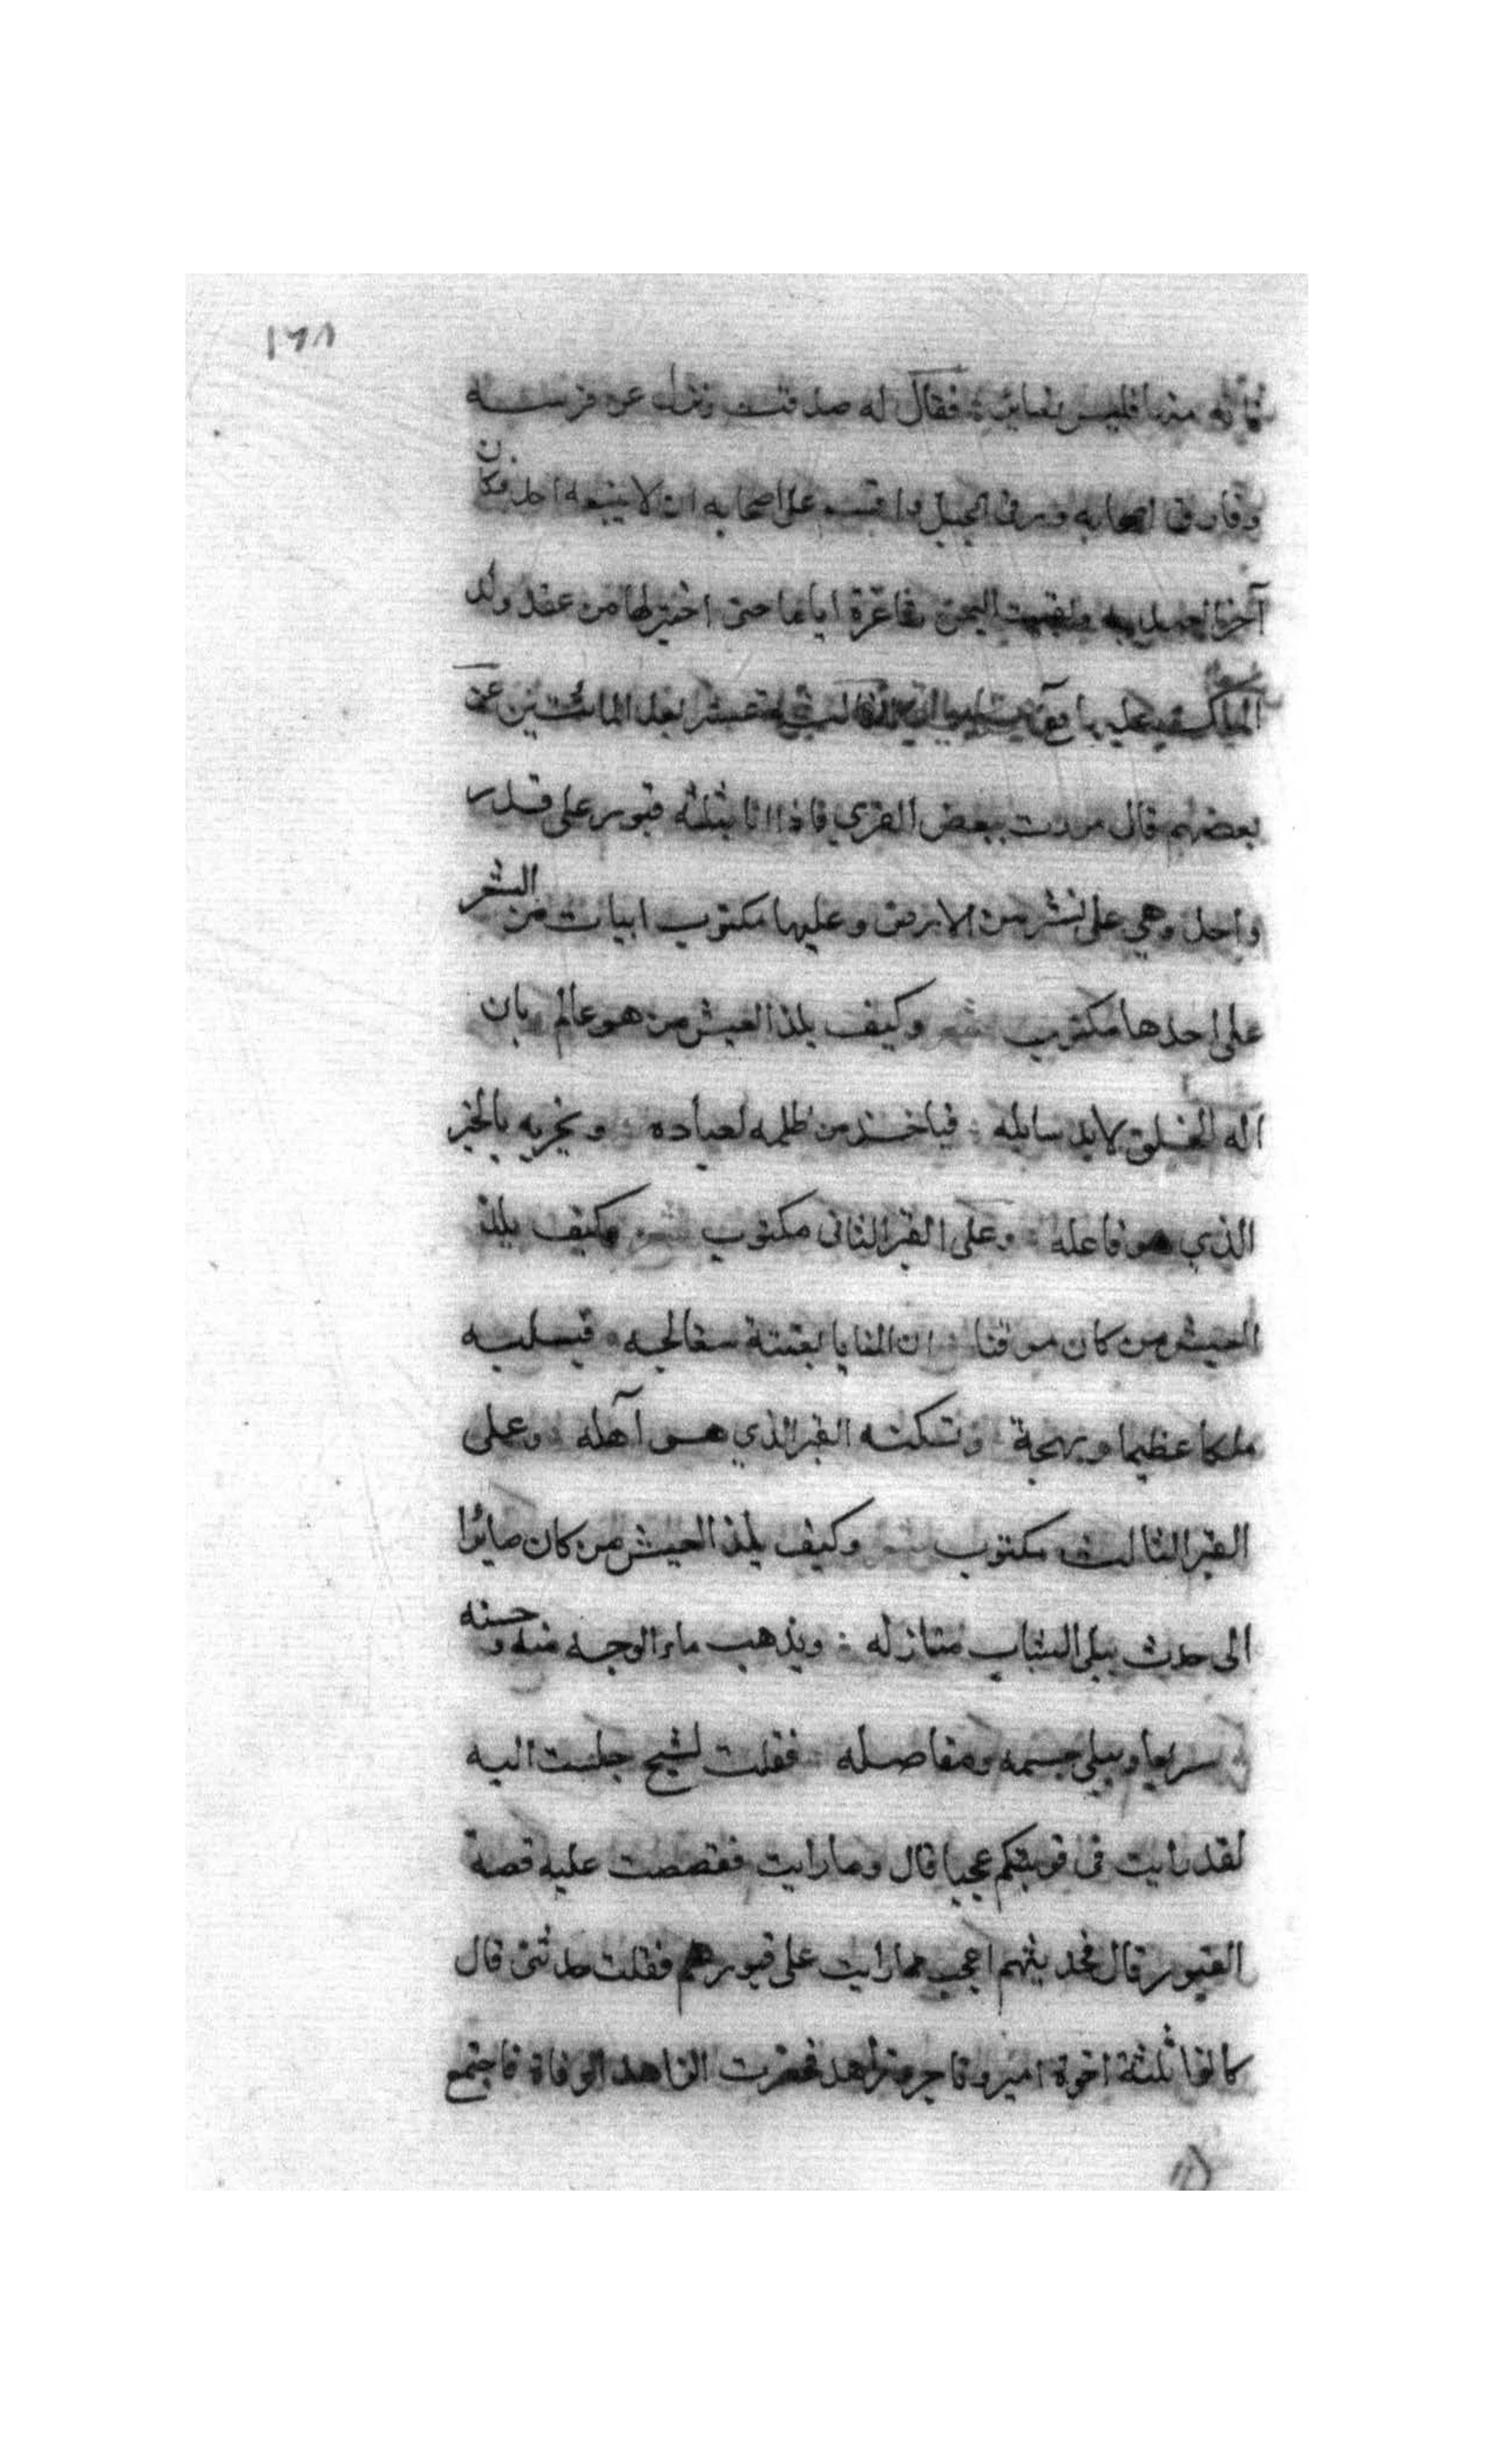 ١٦٨
منها فليس بغابن فقال له صدقت ونزل عن فرسه
وفارق اصحابه ورقى الجبل واقسم على اصحابه ان لا يتبعه احد فكان
آخر العهد به وبقيت اليمن فاغرة اياما حتى اختير لها من عقد ولد
الملك عشر بعد المائتين عن
بعضهم قال مررت ببعض القرى فاذا انا بثلثة قبور على قدر
واحد وهي على نشز من الارض وعليها مكتوب ابيات من الشعر
على احدها مكتوب شعر وكيف يلذ العيش من هو عالم بان
اله الخلق لابد سايله فياخذ من ظلمه لعباده ويجزيه بالخير
الذي هو فاعله وعلى القبر الثاني مكتوب شعر وكيف يلذ
العيش من كان موقنا ان المنايا بغتة ستعالجه فيسلبه
ملكا عظيما وبهجة وتسكنه القبر الذي هو آهله وعلى
القبر الثالث مكتوب شعر وكيف يلذ العيش من كان صائرا
الى حدث يبلى الشباب منازله ويذهب ماء الوجه منه وحسنه
سريعا ويبلى جسمه ومفاصله فقلت لشيخ جلست اليه
لقد رايت فى قريتكم عجبا قال وما رايت فقصصت عليه قصة
القبور قال فحديثهم اعجب مما رايت على قبورهم فقلت حدثنى قال
كانوا ثلثة اخوة امير وتاجر وزاهد فحضرت الزاهد الوفاة فاجتمع